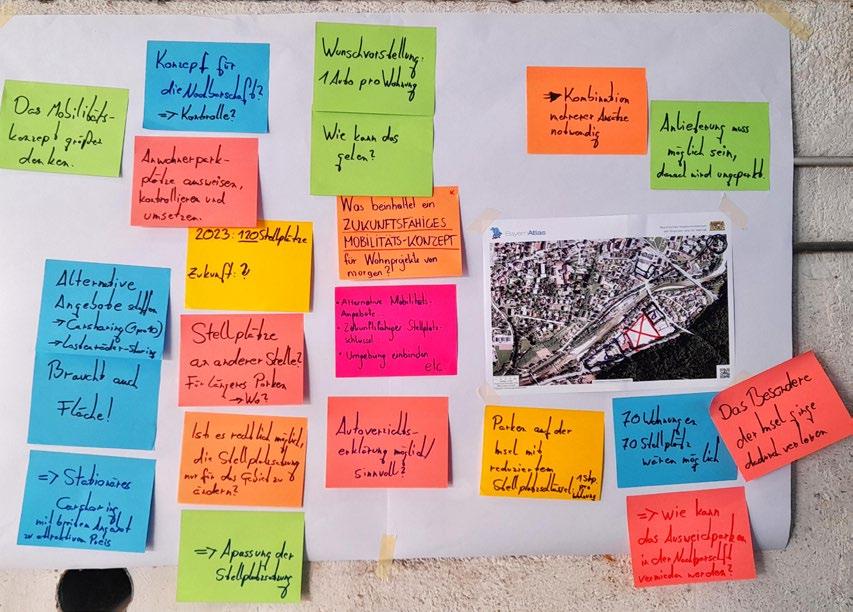 Das Mobilitäts-
konzept größer
denken.
Konzept für
die Nachbarschaft?
=> Kontrolle?
Anwohnerpark-
plätze ausweisen,
kontrollieren und
umsetzen.
2023: 120 Stellplätze
Zukunft: ?
Alternative
Angebote schaffen
-> Carsharing
-> Lastenräder-Sharing
Braucht auch
Fläche!
=> Stationäres
Carsharing
mit breiten Angebot
zu attraktiven Preis
Stellplätze
an anderer Stelle?
Für längeres Parken
-> Wo?
Ist es rechtlich möglich,
die Stellplatzsatzung
nur für das Gebiet zu
ändern?
=> Apassung der
Stellplatzsatzung
Wunschvorstellung:
1 Auto pro Wohnung
Wie kann das
gehen?
Was beinhaltet ein
ZUKUNFTSFÄHIGES
MOBILITÄTS-KONZEPT
für Wohnprojekte von
morgen?
• Alternative Mobilitäts-
Angebote
• Zukunftsfähiger Stellplatz-
schlüssel
• Umgebung einbinden
etc
Autoverzichts-
erklärung möglich/
sinnvoll?
=> Kombination
mehrerer Ansätze
notwendig
Anlieferung muss
möglich sein,
danach wird umgeparkt.
BayernAtlas
Parken auf der
Insel mit
reduziertem
Stellplatzschlüssel
1 Stp.
pro
Wohnung
70 Wohnungen
70 Stellplätz
wären möglich
Das Besondere
der Insel ginge
dadurch verloren
=> Wie kann
das Ausweichparken
in der Nachbarschaft
vermieden werden?